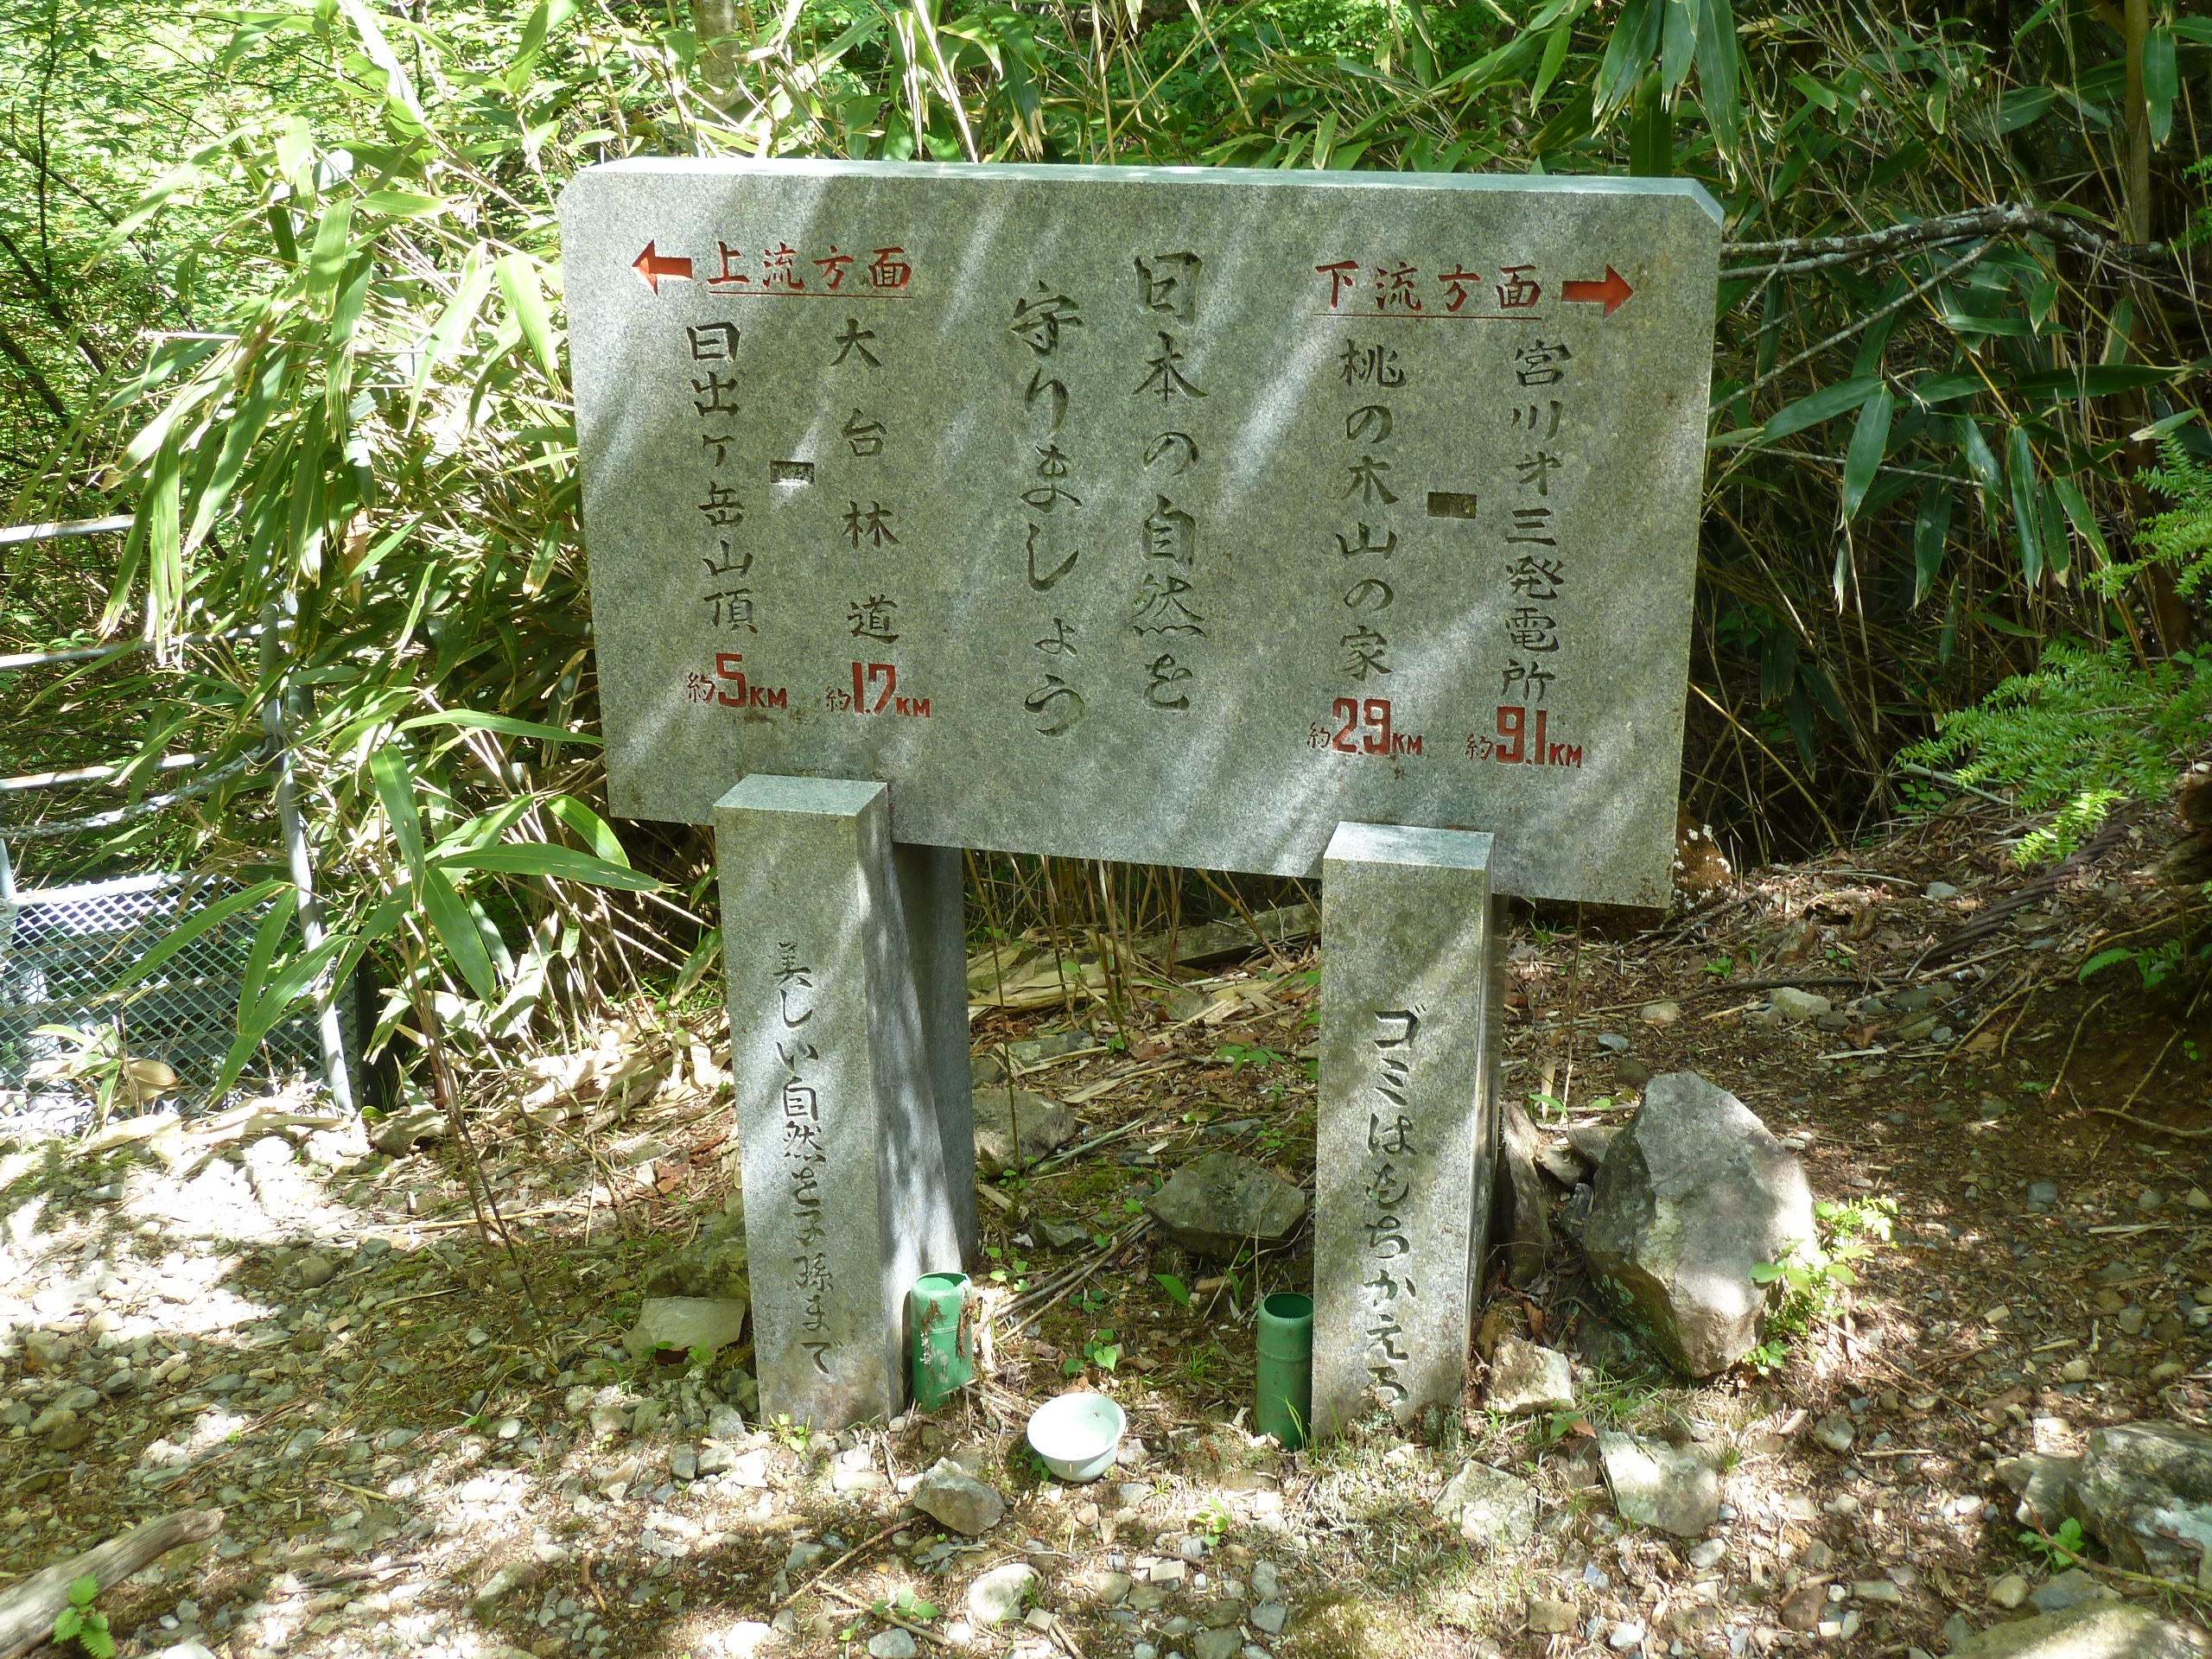 下流方面→
宮川才三発電所 約9.1KM
桃の木山の家 約2.9KM
日本の自然を
守りましょう
←上流方面
大台林道 約1.7KM
日出ヶ岳山頂 約5KM
ゴミはもちかえろ
美しい自然を子孫まで